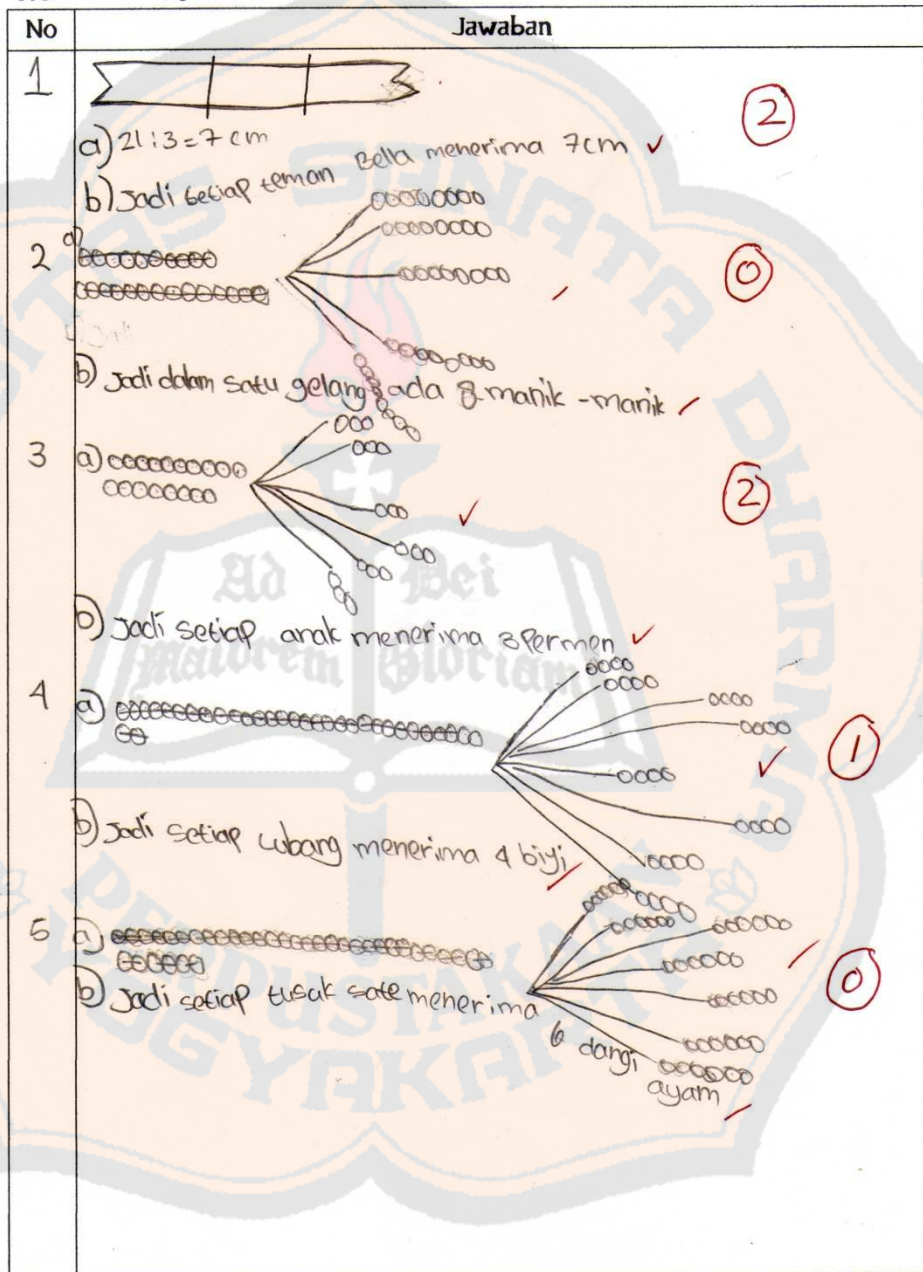 No Jawaban
1
2
a) 21:3=7 cm
b) Jadi setiap teman Bella menerima 7cm
2 a)
0
b) Jadi dalam satu gelang ada 8 manik-manik
3 a)
2
b) Jadi setiap anak menerima 3 Permen
4 a)
1
b) Jadi setiap Lubang menerima 4 biji
5 a)
0
b) Jadi setiap tusuk sate menerima
6 dangi
ayam
SANATA DHARMA
Ad Dei
Maiorem Gloriam
PERPUSTAKAAN
YOGYAKARTA